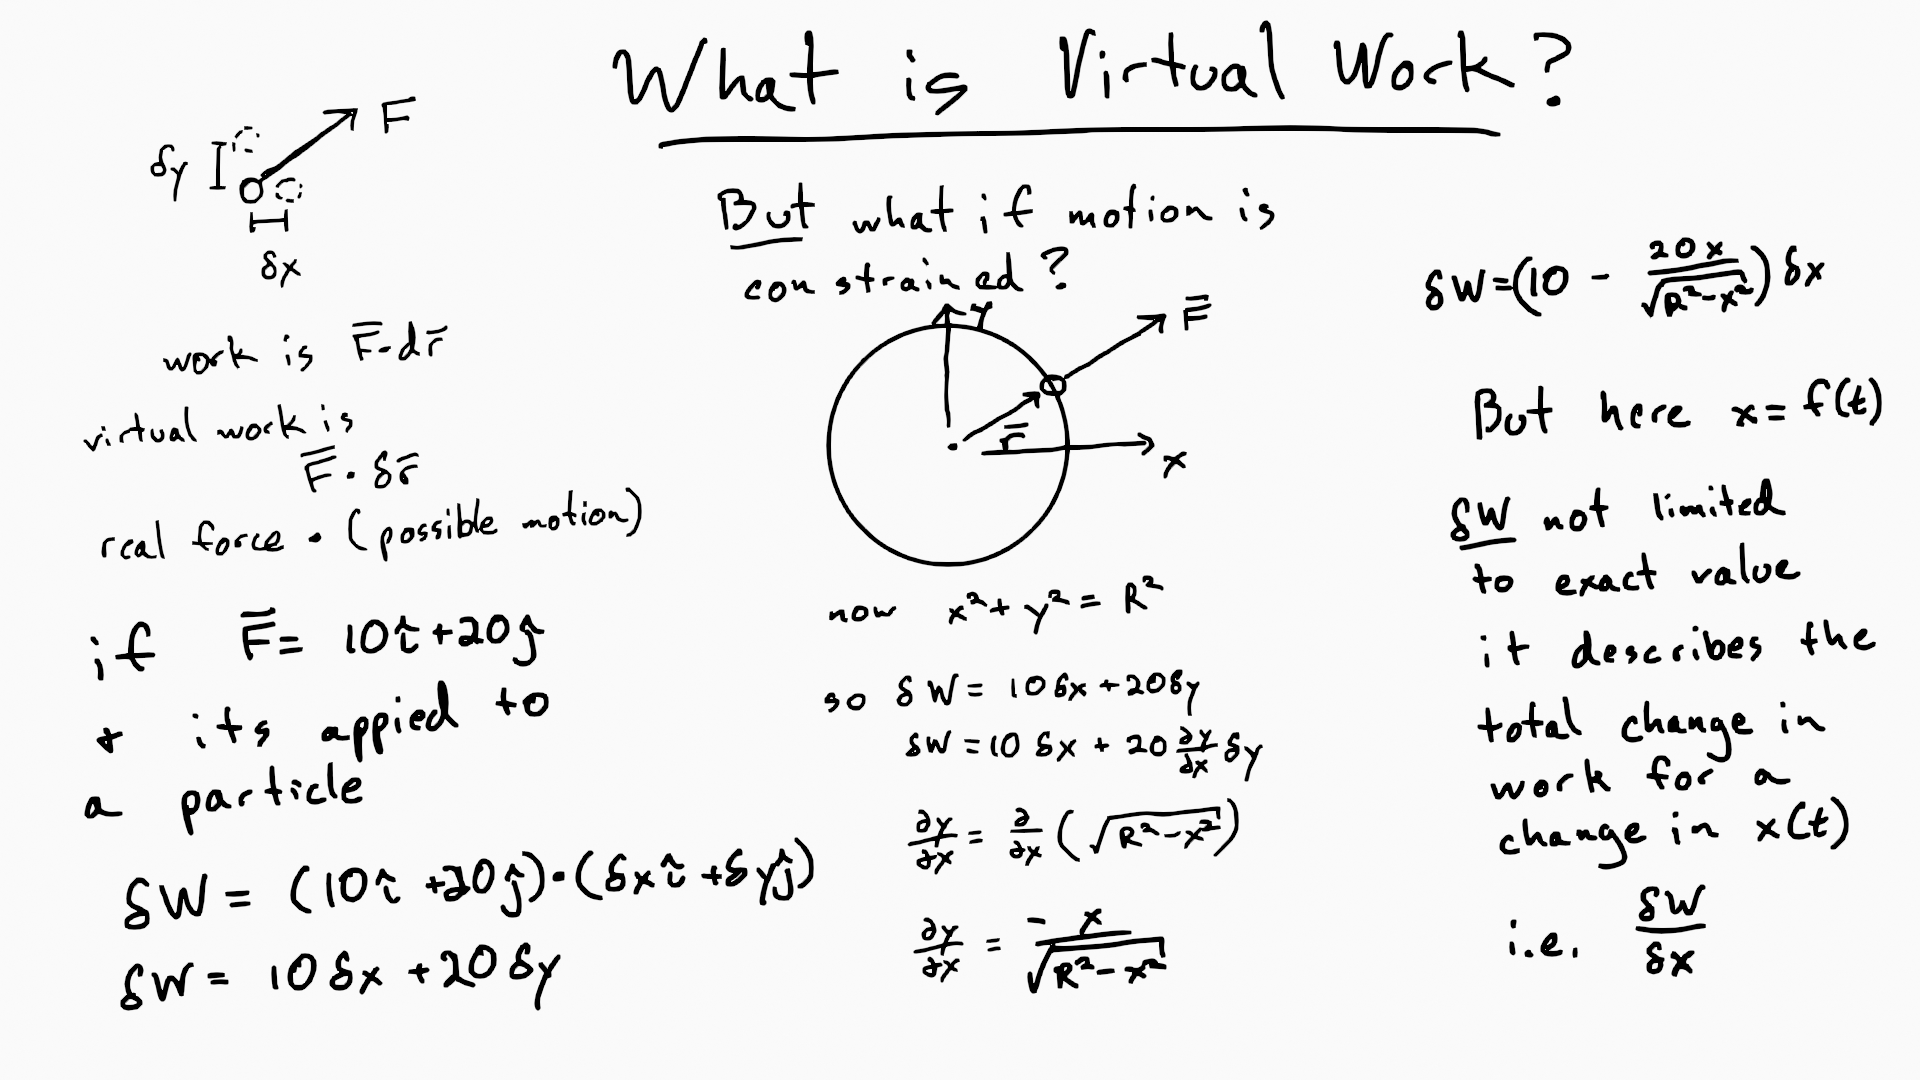 What is Virtual Work?
F
δy
δx
work is F̅·dr̅
virtual work is
F̅·δr̅
real force · (possible motion)
if F̅= 10î+20ĵ
+ its appied to
a particle
δW = (10î+20ĵ)·(δxî+δyĵ)
δW = 10δx+20δy
But what if motion is
constrained?
y
F̅
r̅
x
now x²+y²=R²
so δW= 10δx+20δy
δW=10 δx + 20 ∂y/∂x δy
∂y/∂x = ∂/∂x (√(R²-x²))
∂y/∂x = -x/√(R²-x²)
δW=(10 - 20x/√(R²-x²))δx
But here x=f(t)
δW not limited
to exact value
it describes the
total change in
work for a
change in x(t)
i.e. δW/δx